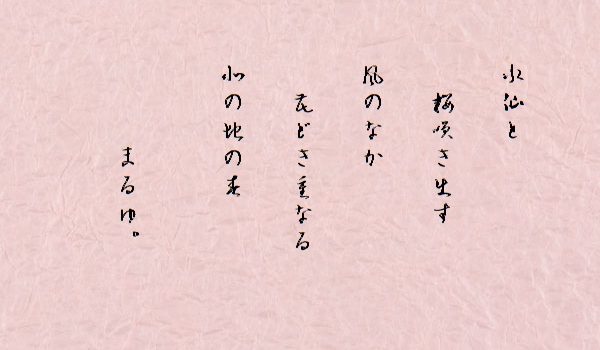 水仙と
桜咲き出す
風のなか
花どき重なる
北の地の春
まるゆ。